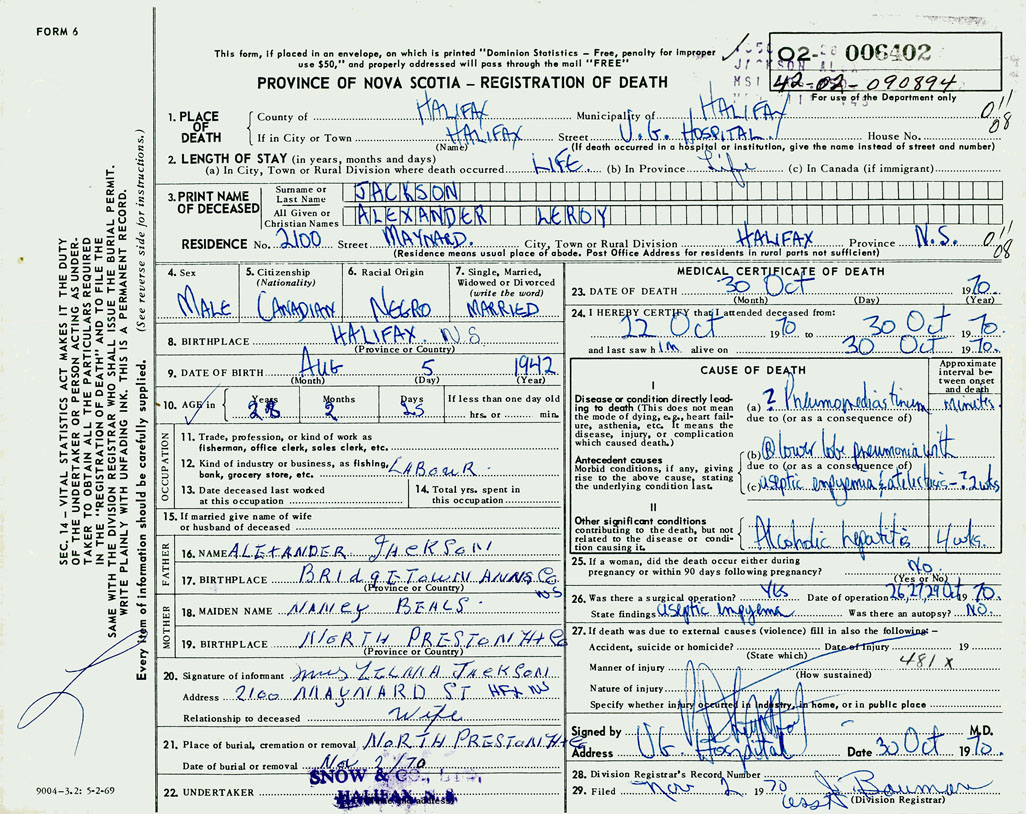 FORM 6
This form, if placed in an envelope, on which is printed "Dominion Statistics – Free, penalty for improper
use $50," and properly addressed will pass through the mail "FREE"
O2- 006402
42-02-090894
For use of the Department only
PROVINCE OF NOVA SCOTIA – REGISTRATION OF DEATH
1. PLACE OF DEATH
County of HALIFAX Municipality of HALIFAX
If in City or Town HALIFAX Street V.G. HOSPITAL House No.
(Name) (If death occurred in a hospital or institution, give the name instead of street and number)
2. LENGTH OF STAY (in years, months and days)
(a) In City, Town or Rural Division where death occurred LIFE (b) In Province Life (c) In Canada (if immigrant)
3. PRINT NAME OF DECEASED
Surname or Last Name JACKSON
All Given or Christian Names ALEXANDER LEROY
RESIDENCE No. 2100 Street MAYNARD. City, Town or Rural Division HALIFAX Province N.S.
(Residence means usual place of abode. Post Office Address for residents in rural parts not sufficient)
4. Sex MALE
5. Citizenship (Nationality) CANADIAN
6. Racial Origin NEGRO
7. Single, Married, Widowed or Divorced (write the word) MARRIED
8. BIRTHPLACE HALIFAX N.S
(Province or Country)
9. DATE OF BIRTH AUG 5 1942
(Month) (Day) (Year)
10. AGE in Years 28 Months 2 Days 25 If less than one day old hrs. or min.
OCCUPATION
11. Trade, profession, or kind of work as
fisherman, office clerk, sales clerk, etc.
12. Kind of industry or business, as fishing,
bank, grocery store, etc. LABOUR.
13. Date deceased last worked
at this occupation
14. Total yrs. spent in
this occupation
15. If married give name of wife
or husband of deceased
FATHER
16. NAME ALEXANDER JACKSON
17. BIRTHPLACE BRIDGETOWN ANNS Co NS
(Province or Country)
MOTHER
18. MAIDEN NAME NANCY BEALS.
19. BIRTHPLACE NORTH PRESTON Hfx Co
(Province or Country)
20. Signature of informant Mrs ZELMA JACKSON
Address 2100 MAYNARD ST HFX NS
Relationship to deceased Wife
21. Place of burial, cremation or removal NORTH PRESTON
Date of burial or removal Nov 2/70
22. UNDERTAKER SNOW & CO., LTD.,
HALIFAX, N. S.
MEDICAL CERTIFICATE OF DEATH
23. DATE OF DEATH 30 Oct 1970.
(Month) (Day) (Year)
24. I HEREBY CERTIFY that I attended deceased from:
22 Oct 1970 to 30 Oct 1970.
and last saw him alive on 30 Oct 1970.
CAUSE OF DEATH
Approximate interval between onset and death
I
Disease or condition directly leading to death (This does not mean the mode of dying, e.g., heart failure, asthenia, etc. It means the disease, injury, or complication which caused death.)
(a) ? Pneumomediastinum minutes
due to (or as a consequence of)
Antecedent causes
Morbid conditions, if any, giving rise to the above cause, stating the underlying condition last.
(b) lower lobe pneumonia with
due to (or as a consequence of)
(c) aseptic empyema & atelectasis – ? 2 wks
II
Other significant conditions
contributing to the death, but not related to the disease or condition causing it.
Alcoholic hepatitis 4 wks.
25. If a woman, did the death occur either during
pregnancy or within 90 days following pregnancy? No.
(Yes or No)
26. Was there a surgical operation? Yes Date of operation 26, 27, 29 Oct 1970.
State findings aseptic empyema Was there an autopsy? NO.
27. If death was due to external causes (violence) fill in also the following:–
Accident, suicide or homicide? Date of Injury 19
(State which)
481 x
Manner of injury
(How sustained)
Nature of injury
Specify whether injury occurred in Industry, in home, or in public place
Signed by M.D.
Address V.G. Hospital Date 30 Oct 1970.
28. Division Registrar's Record Number
29. Filed Nov 2 1970 J. Bauman
(Division Registrar)
SEC. 14 – VITAL STATISTICS ACT MAKES IT THE DUTY
OF THE UNDERTAKER OR PERSON ACTING AS UNDERTAKER TO OBTAIN ALL THE PARTICULARS REQUIRED
IN THE "REGISTRATION OF DEATH" AND TO FILE THE
SAME WITH THE DIVISION REGISTRAR WHO SHALL ISSUE THE BURIAL PERMIT.
WRITE PLAINLY WITH UNFADING INK. THIS IS A PERMANENT RECORD.
Every item of information should be carefully supplied. (See reverse side for instructions.)
9004-3.2: 5-2-69